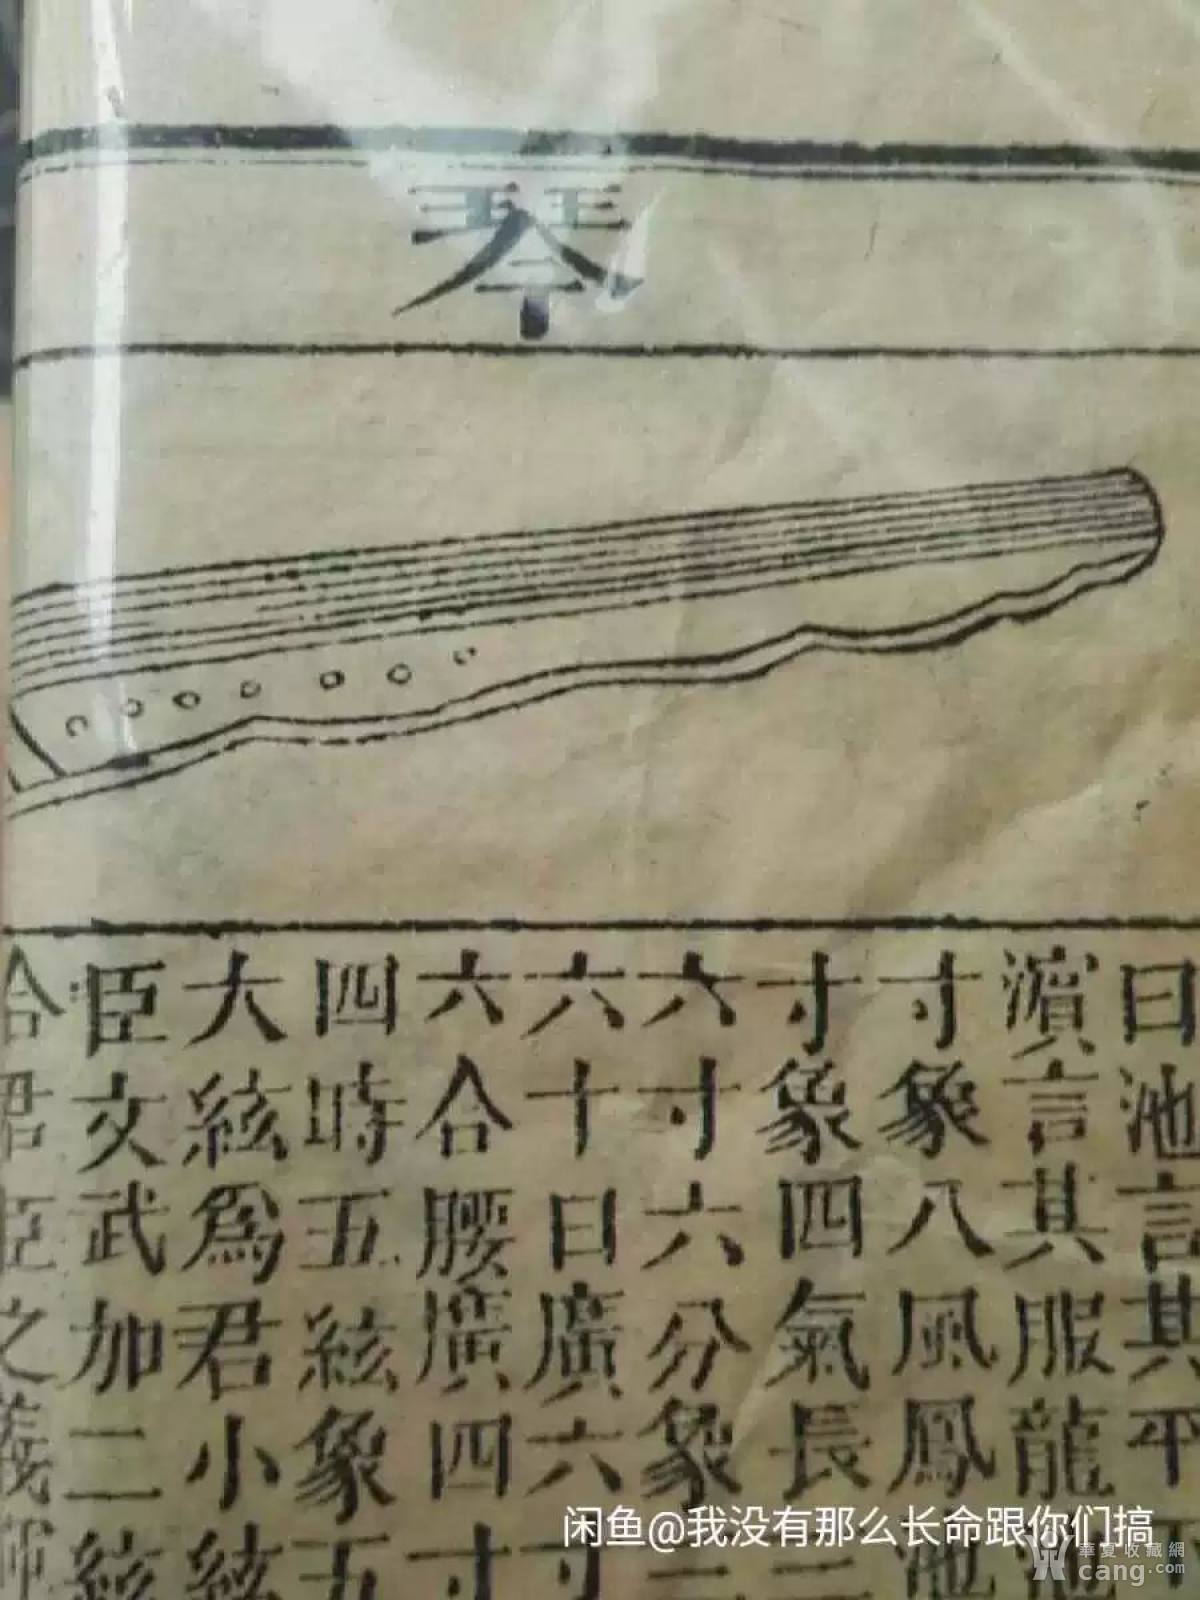 琴
曰池言其平
濵言其服龍池
寸象八風鳳池
寸象四氣長三
六寸六分象三
六十日廣六寸
六合腰廣四寸
四時五絃象五
大絃爲君小絃
臣文武加二絃
合君臣之義
闲鱼@我没有那么长命跟你们搞
華夏收藏網
cang.com